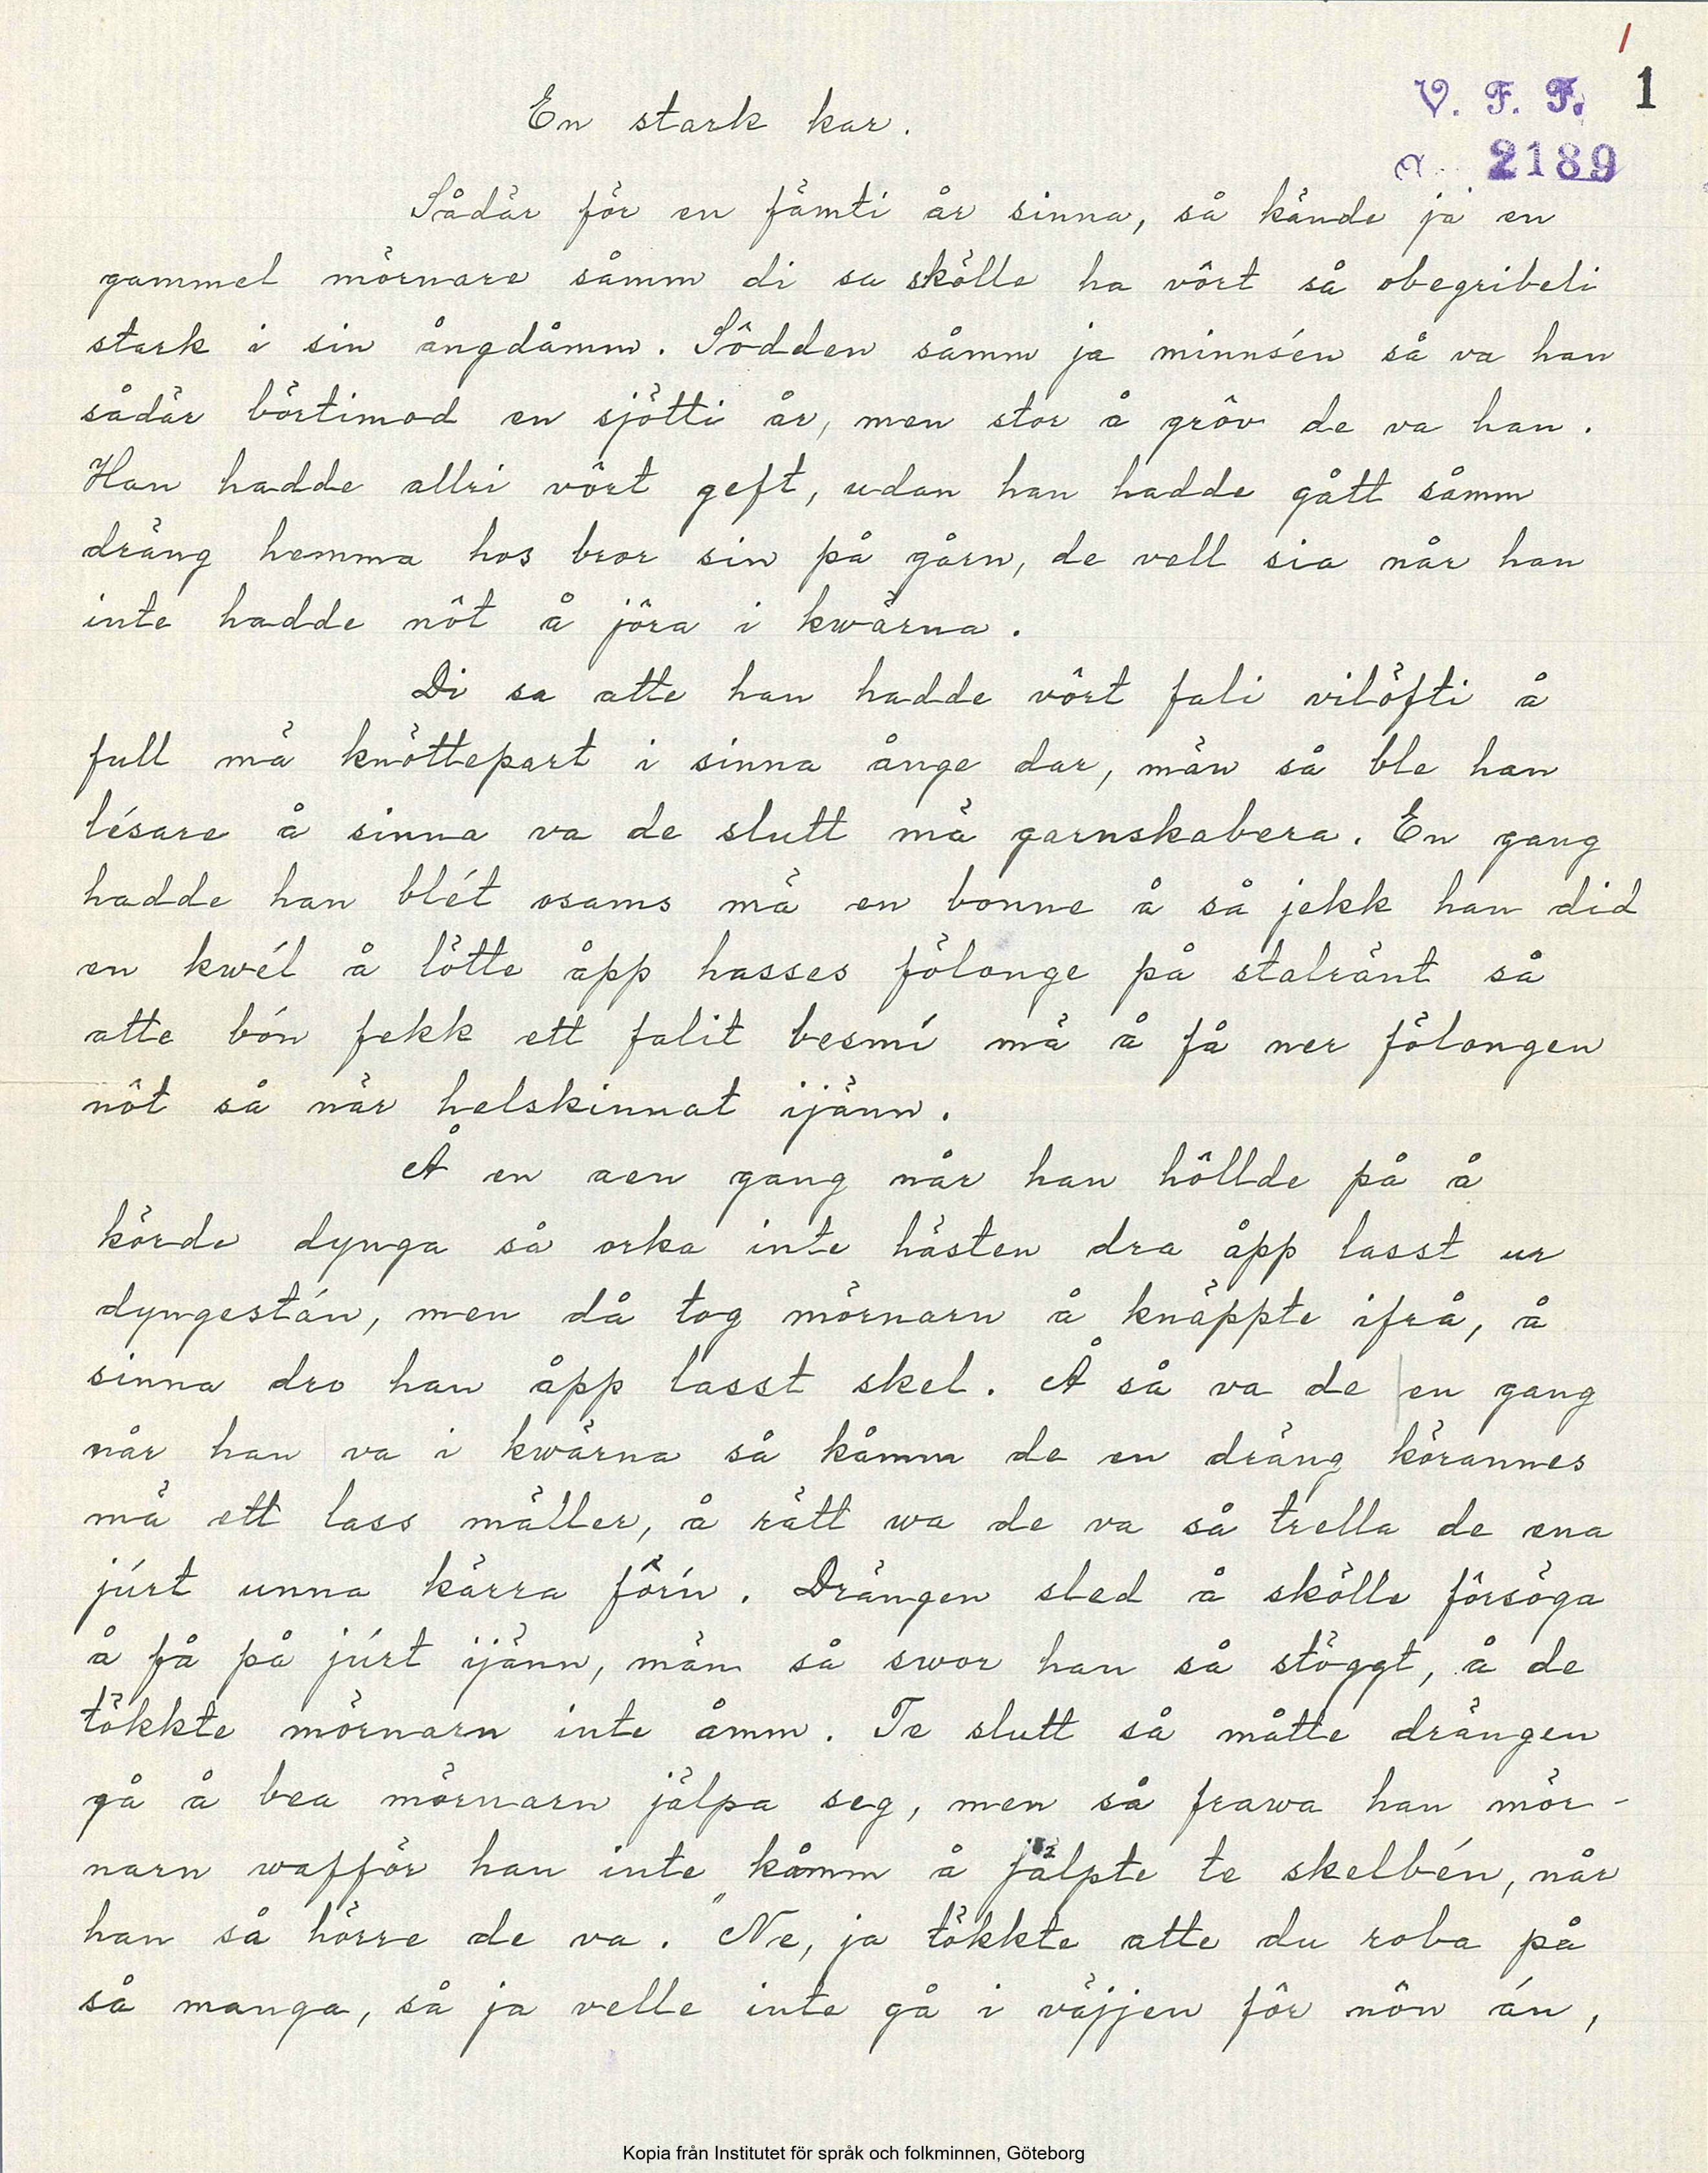 /
V. F. F. 1
a. 2189
En stark kar.
Sådär för en fämti år sinna, så kände ja en
gammel mörnare såmm di sa skölle ha vôrt så obegribeli
stark i sin ångdåmm. Sôdden såmm ja minnsén så va han
sådär börtimod en sjötti år, men stor å grôv de va han.
Han hadde allri vôrt geft, udan han hadde gått såmm
dräng hemma hos bror sin på gårn, de vell sia når han
inte hadde nôt å jôra i kwärna.
Di sa atte han hadde vôrt fali vilöfti å
full mä knöttepart i sinna ånge dar, män så ble han
lésare å sinna va de slutt mä garnskabera. En gang
hadde han blét osams mä en bonne å så jekk han did
en kwél å lötte åpp hasses fölonge på stalränt så
atte bón fekk ett falit besmí mä å få ner fölongen
nôt så när helskinnat ijänn.
Å en aen gang når han hôllde på å
körde dynga så orka inte hästen dra åpp lasst ur
dyngestán, men då tog mörnarn å knäppte ifrå, å
sinna dro han åpp lasst skel. Å så va de en gang
når han va i kwärna så kåmm de en dräng körannes
mä ett lass mäller, å rätt wa de va så trella de ena
júrt unna kärra fôrín. Drängen sled å skölle fôrsöga
å få på júrt ijänn, män så swor han så stöggt, å de
tökkte mörnarn inte åmm. Te slutt så måtte drängen
gå å bea mörnarn jälpa seg, men så frawa han mör-
narn waffôr han inte kåmm å jälpte te skelbén, når
han så hörre de va. "Ne, ja tökkte atte du roba på
så manga, så ja velle inte gå i väjjen fôr nôn án,
Kopia från Institutet för språk och folkminnen, Göteborg